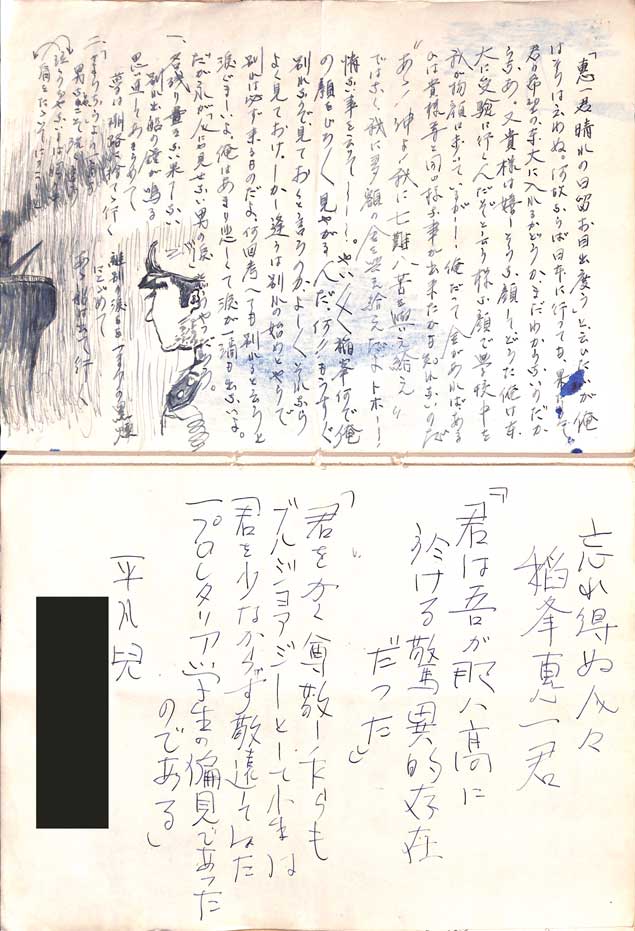 「惠一君晴れの日留お目出度う」と云ひたいが俺
はそうは云わぬ。何故ならば日本に行っても、果して
君の希望の東大に入れるかどうかまだわからないのだか
らなあ。又貴様は嬉しそうな顔してどうだ俺は東
大に受験に行くんだぞと云う様な顔で学校中を
我が物顔に歩いているが――俺だって金があればある
ひは貴様等と同じ様な事が出来たかも知れないのだ
"あゝ!神よ!我に七難八苦を與へ給え"
ではなく我に多額の金を與え給えだよトホー!
情ない事を云うて――。やい〳〵稲峯何で俺
の顔をじろ〳〵見やがるんだ、何!!もうすぐ
別れるので見ておくと言うのか、よーしそれなら
よく見ておけ。しかし逢うは別れの始めとやらで
別れは必ず来るものだよ、何回考へても別れると云うと
淋しまーいよ。俺はあまり悲しくて涙が一滴も出ないよ。
だが之が"人に見せない男の涙"と云うやつだらう。
一、名残り盡きない果てしない
別れ出船の鐘が鳴る
思い直してあきらめて
夢は潮路に捨てゝ行く
離別の涙
にじめて
船は出て行く
忘れ得ぬ人々
稲峯惠一君
『君は吾が那八高に
於ける驚異的存在
だった』
「君をかく尊敬しながらも
ブルジョアジーとして小生は
君を少なからず敬遠してゐた
一プロレタリア学生の偏見であった
のである」
平凡兒